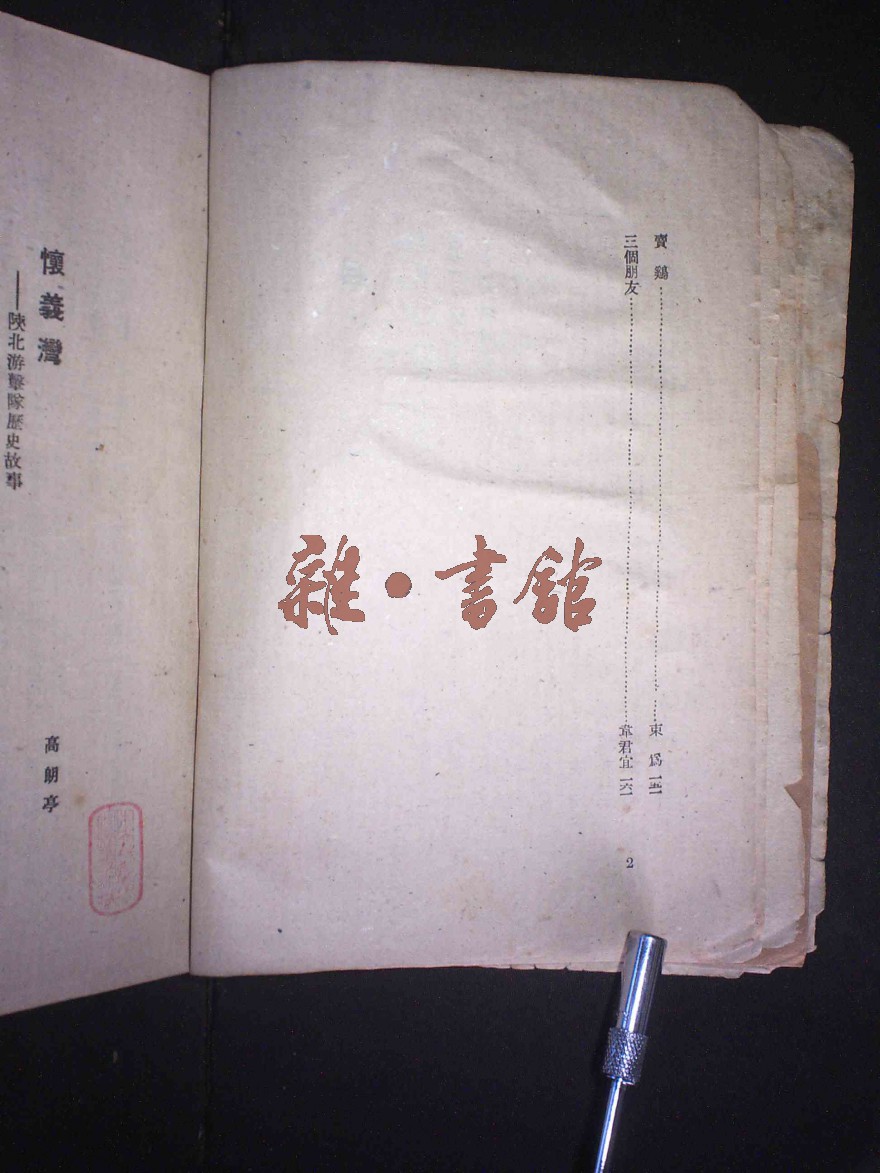 賣鷄……東爲一五一
三個朋友……韋君宜一六一
2
懷義灣
——陝北游擊隊歷史故事
高朗亭
雜·書館